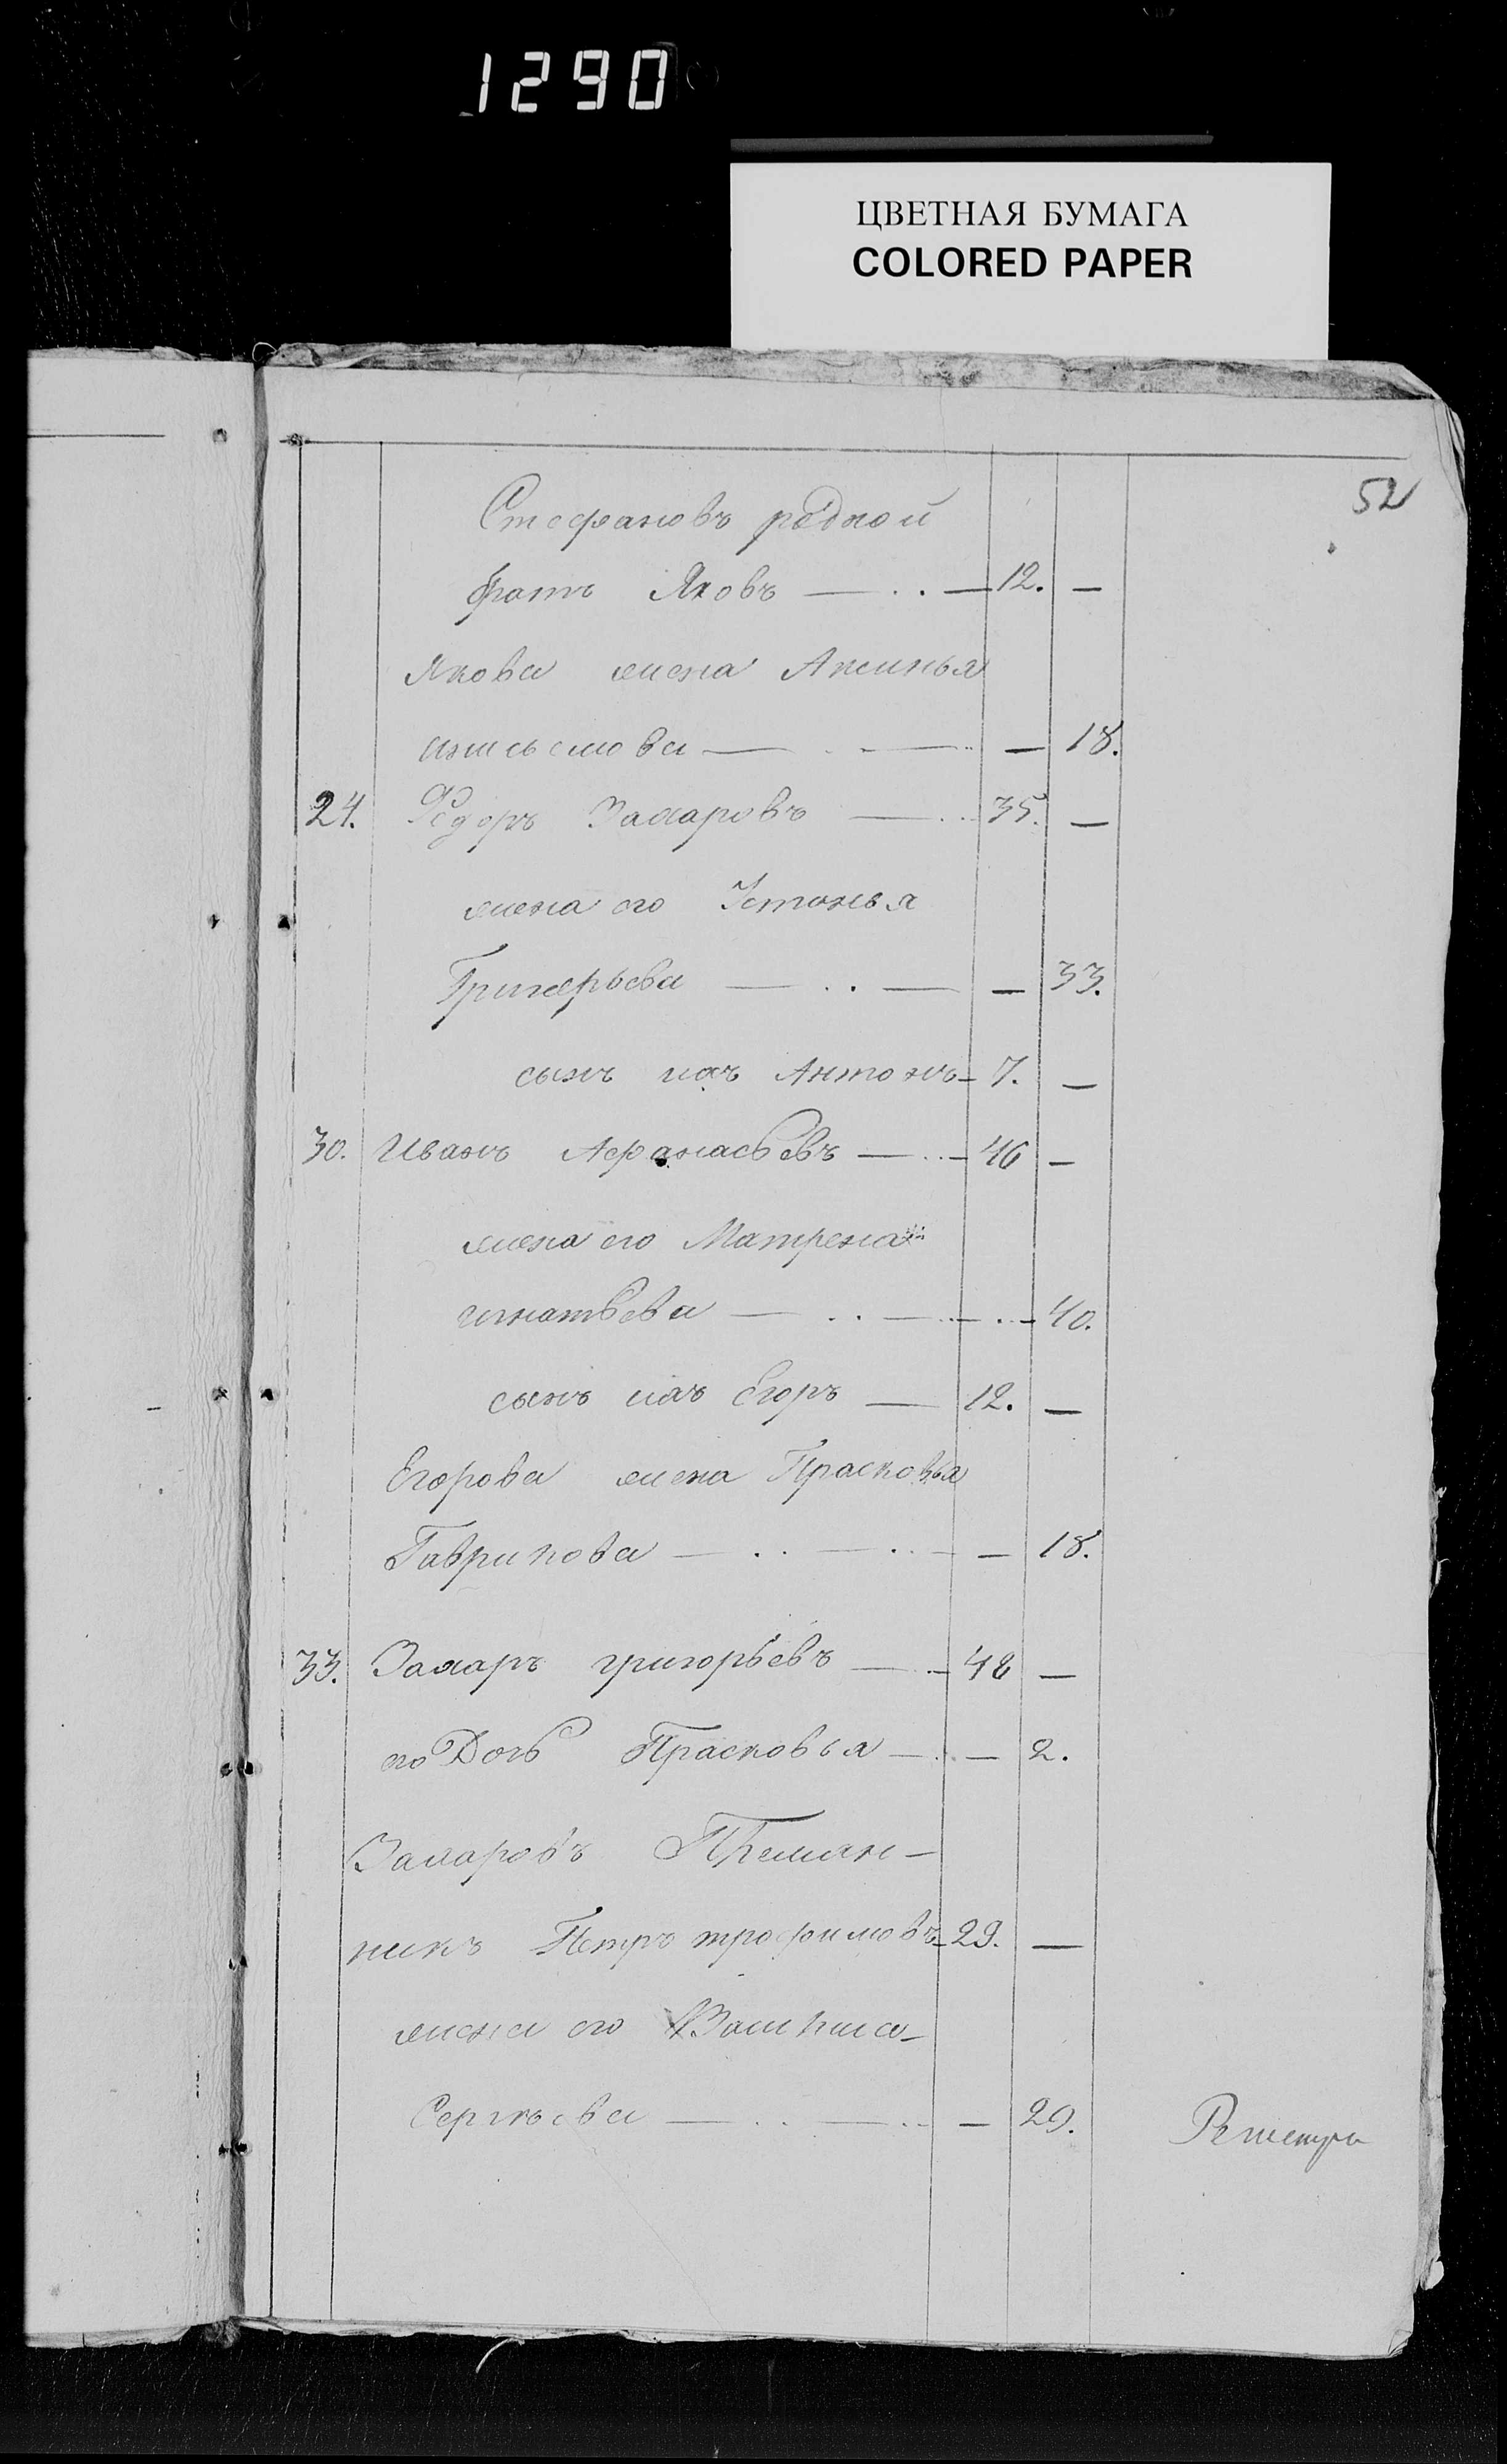 1290
ЦВЕТНАЯ БУМАГА
COLORED PAPER
52
Стефановъ родной
братъ Яковъ — . . — 12. —
Якова жена Аксинья
— . — .. — 18.
24. Федоръ Захаровъ — .. 35. —
жена его Устинья
Григорьева — . . — — 33.
сынъ ихъ Антонъ — 7. —
30. Иванъ Афанасьевъ — .. — 46 —
жена его Матрена
игнатьева — . . — . — . — 40.
сынъ ихъ Егоръ — 12. —
Егорова жена Прасковья
Гаврилова — . . — . . — — 18.
33. Захаръ григорьевъ — . — 48 —
его Дочь Прасковья — . — 2.
Захаровъ Племян-
никъ Петръ трофимовъ — 29. —
жена его
Сергѣева — . . — .. — 29.